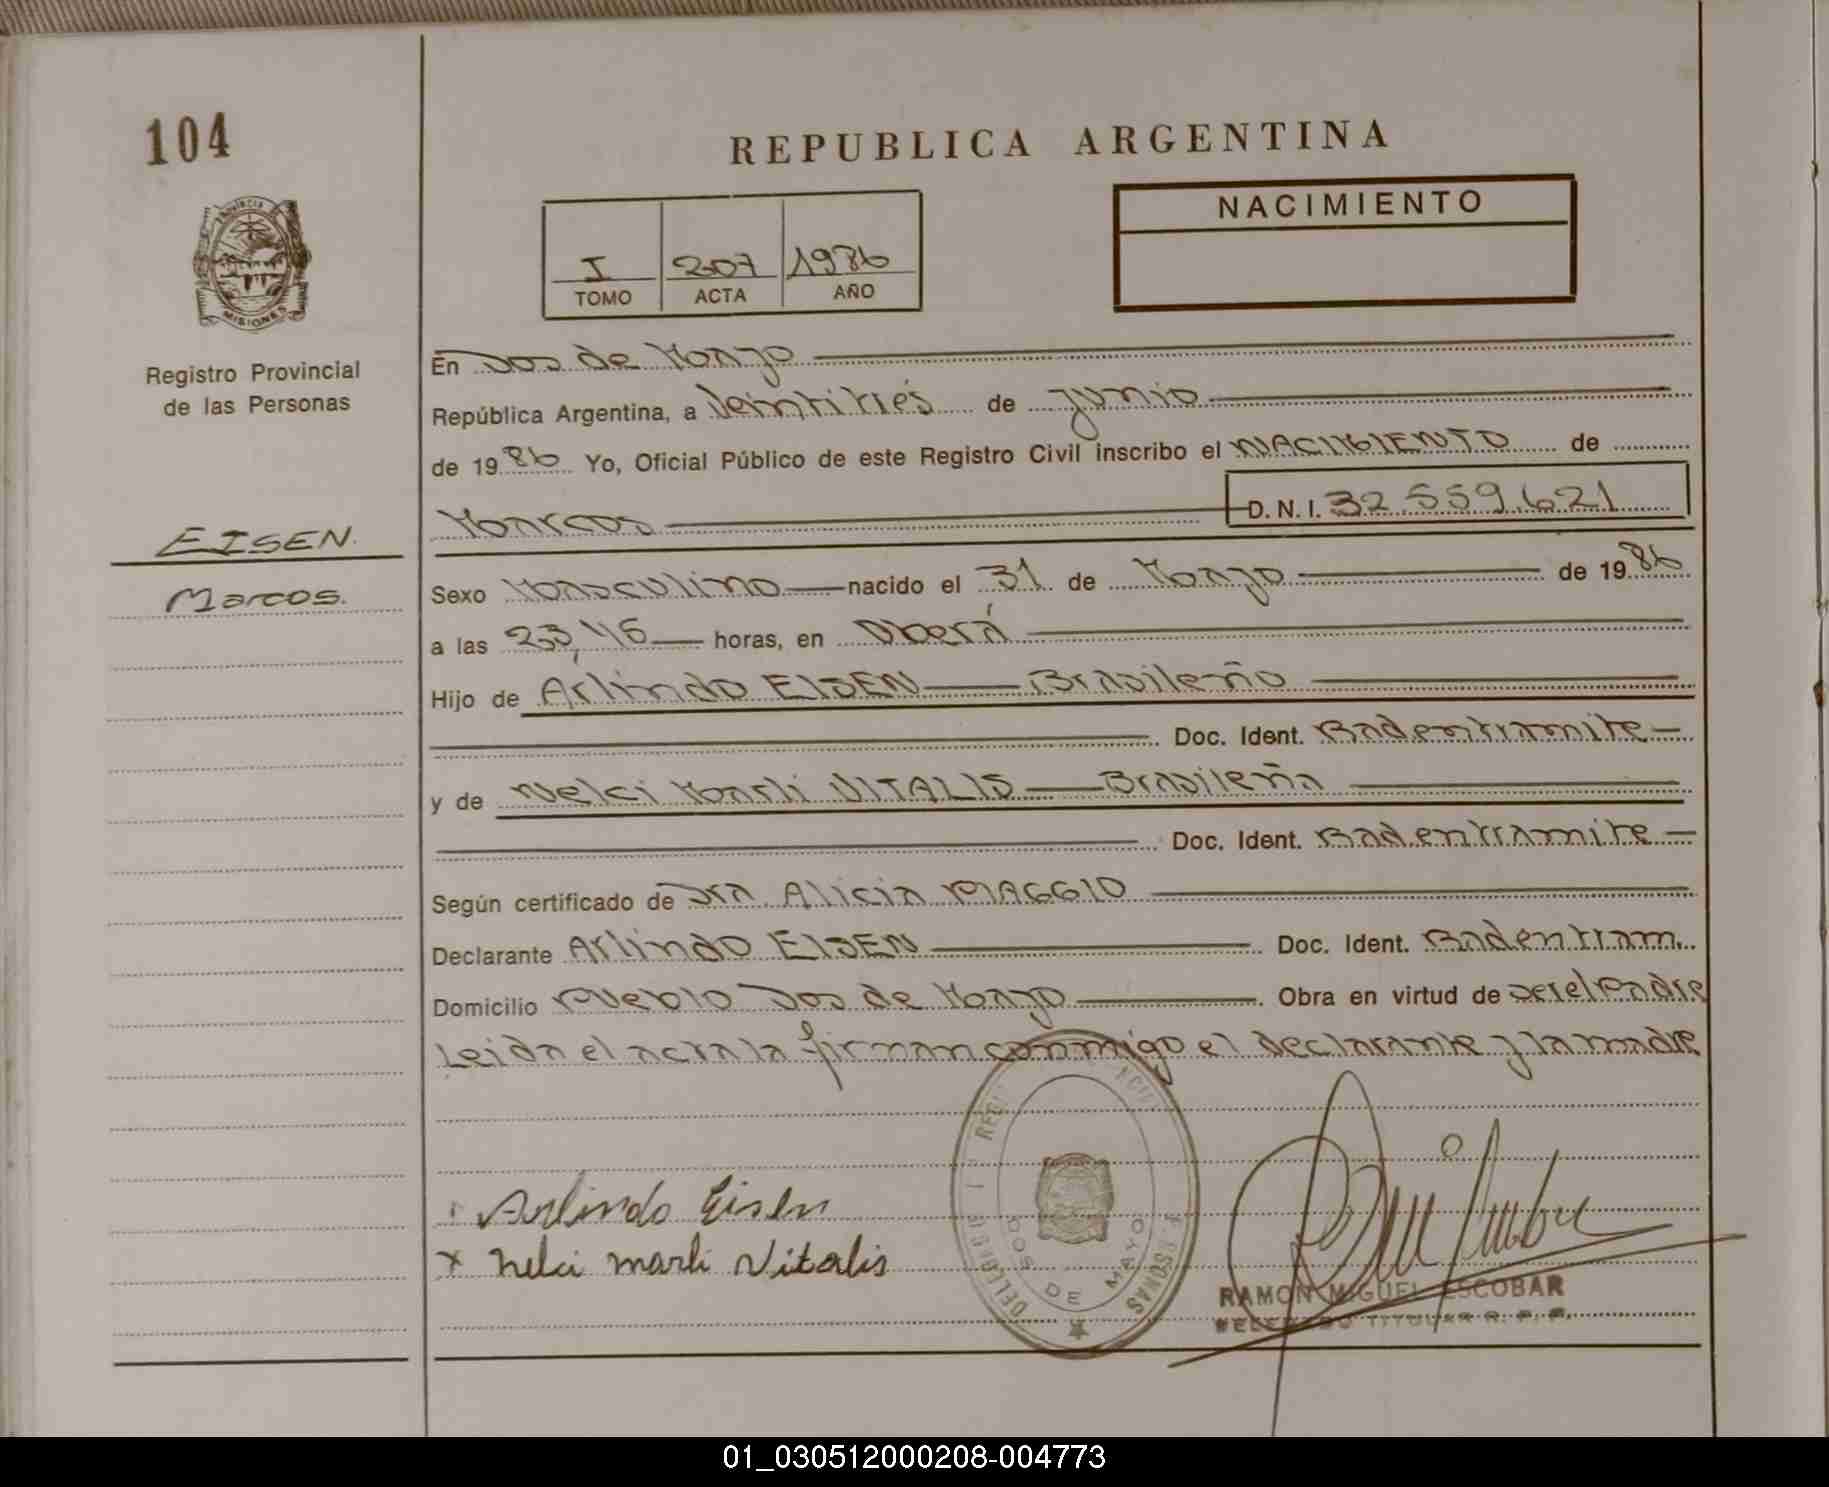 104
REPUBLICA ARGENTINA
NACIMIENTO
I 207 1986
TOMO ACTA AÑO
PROVINCIA
MISIONES
Registro Provincial
de las Personas
EISEN.
Marcos.
En Dos de Mayo
República Argentina, a Veintitrés de Junio
de 1986 Yo, Oficial Público de este Registro Civil inscribo el NACIMIENTO de
Marcos D. N. I. 32.559.621
Sexo Masculino nacido el 31 de Mayo de 1986
a las 23,45 horas, en Oberá
Hijo de Arlindo EISEN Brasileño
Doc. Ident. Rad.en tramite
y de Nelci Marli VITALIS Brasileña
Doc. Ident. Rad.en tramite
Según certificado de Dra. Alicia MAGGIO
Declarante Arlindo EISEN Doc. Ident. Rad.en tram.
Domicilio Pueblo Dos de Mayo Obra en virtud de ser el Padre
Leida el acta la firman conmigo el declarante y la madre
Arlindo Eisen
x Nelci Marli Vitalis
DOS DE MAYO
RAMON MIGUEL ESCOBAR
DELEGADO TITULAR R. P. P.
01_030512000208-004773